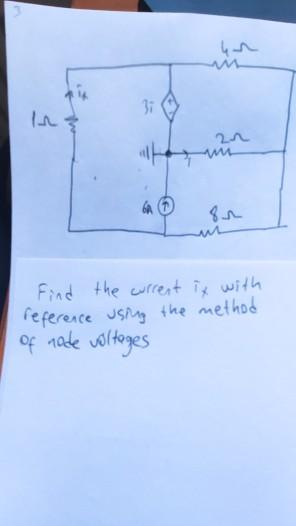 3
4Ω
ix
1Ω
3i
2Ω
i
6A
8Ω
Find the current ix with
reference using the method
of node voltages